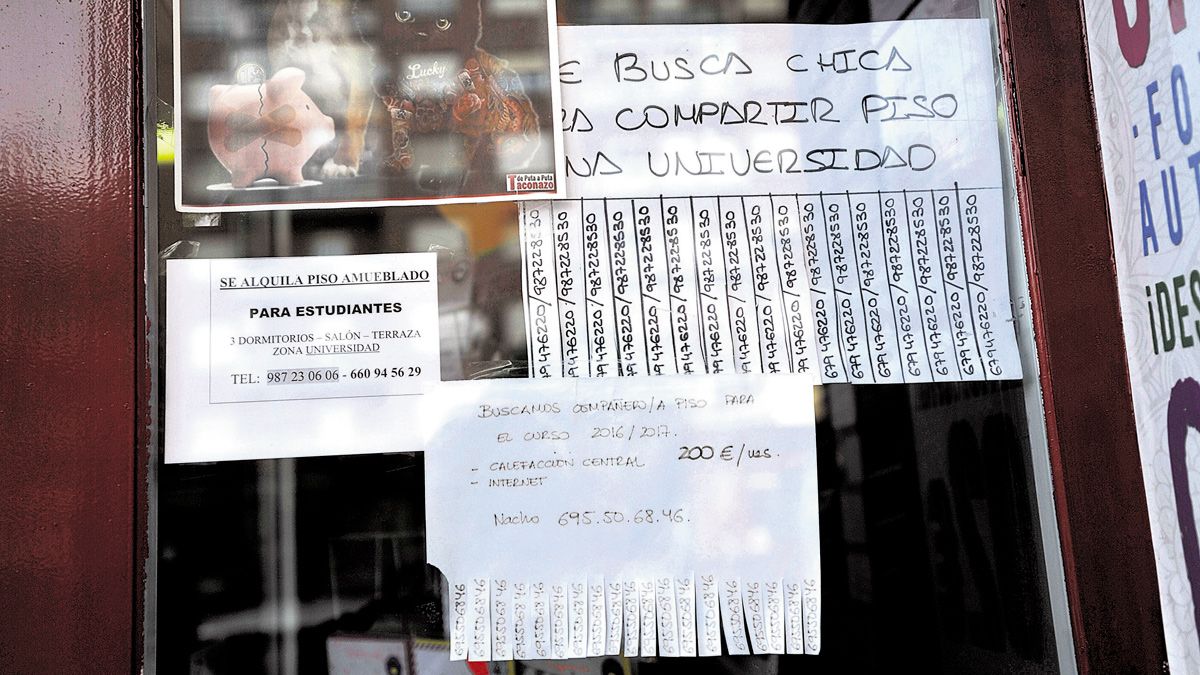 Lucky
T de Puta a Puta
Taconazo
E BUSCA CHICA
RA COMPARTIR PISO
NA UNIVERSIDAD
679476220/987228530
679476220/987228530
679476220/987228530
679476220/987228530
679476220/987228530
679476220/987228530
679476220/987228530
679476220/987228530
679476220/987228530
679476220/987228530
679476220/987228530
679476220/987228530
679476220/987228530
679476220/987228530
679476220/987228530
679476220/987228530
SE ALQUILA PISO AMUEBLADO
PARA ESTUDIANTES
3 DORMITORIOS – SALÓN – TERRAZA
ZONA UNIVERSIDAD
TEL: 987 23 06 06 - 660 94 56 29
BUSCAMOS COMPAÑERO/A PISO PARA
EL CURSO 2016/2017.
- CALEFACCIÓN CENTRAL 200 €/mes.
- INTERNET
Nacho 695.50.68.46.
695506846
695506846
695506846
695506846
695506846
695506846
695506846
695506846
695506846
695506846
695506846
695506846
695506846
695506846
695506846
695506846
695506846
695506846
FO
AUT
¡DES